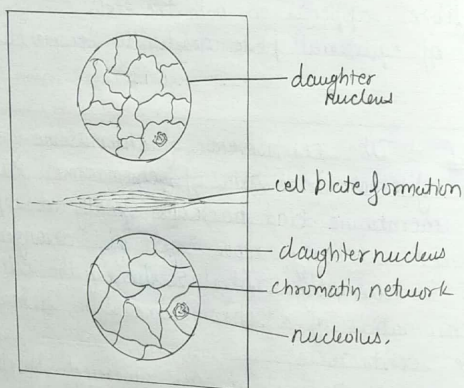 daughter
nucleus
cell plate formation
daughter nucleus
chromatin network
nucleolus.